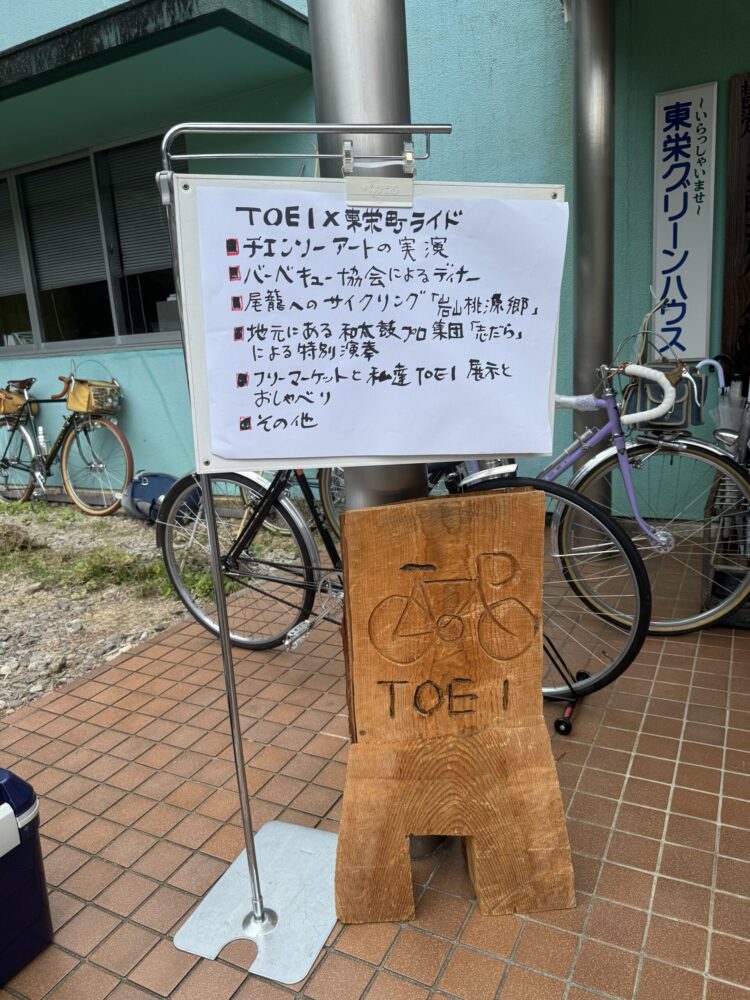 TOEI×東栄町ライド
チエンソーアートの実演
バーベキュー協会によるディナー
尾籠へのサイクリング「岩山桃源郷」
地元にある和太鼓プロ集団「志だら」
による特別演奏
フリーマーケットと私産TOEI展示と
おしゃべり
その他
TOEI
～いらっしゃいませ～
東栄グリーンハウス